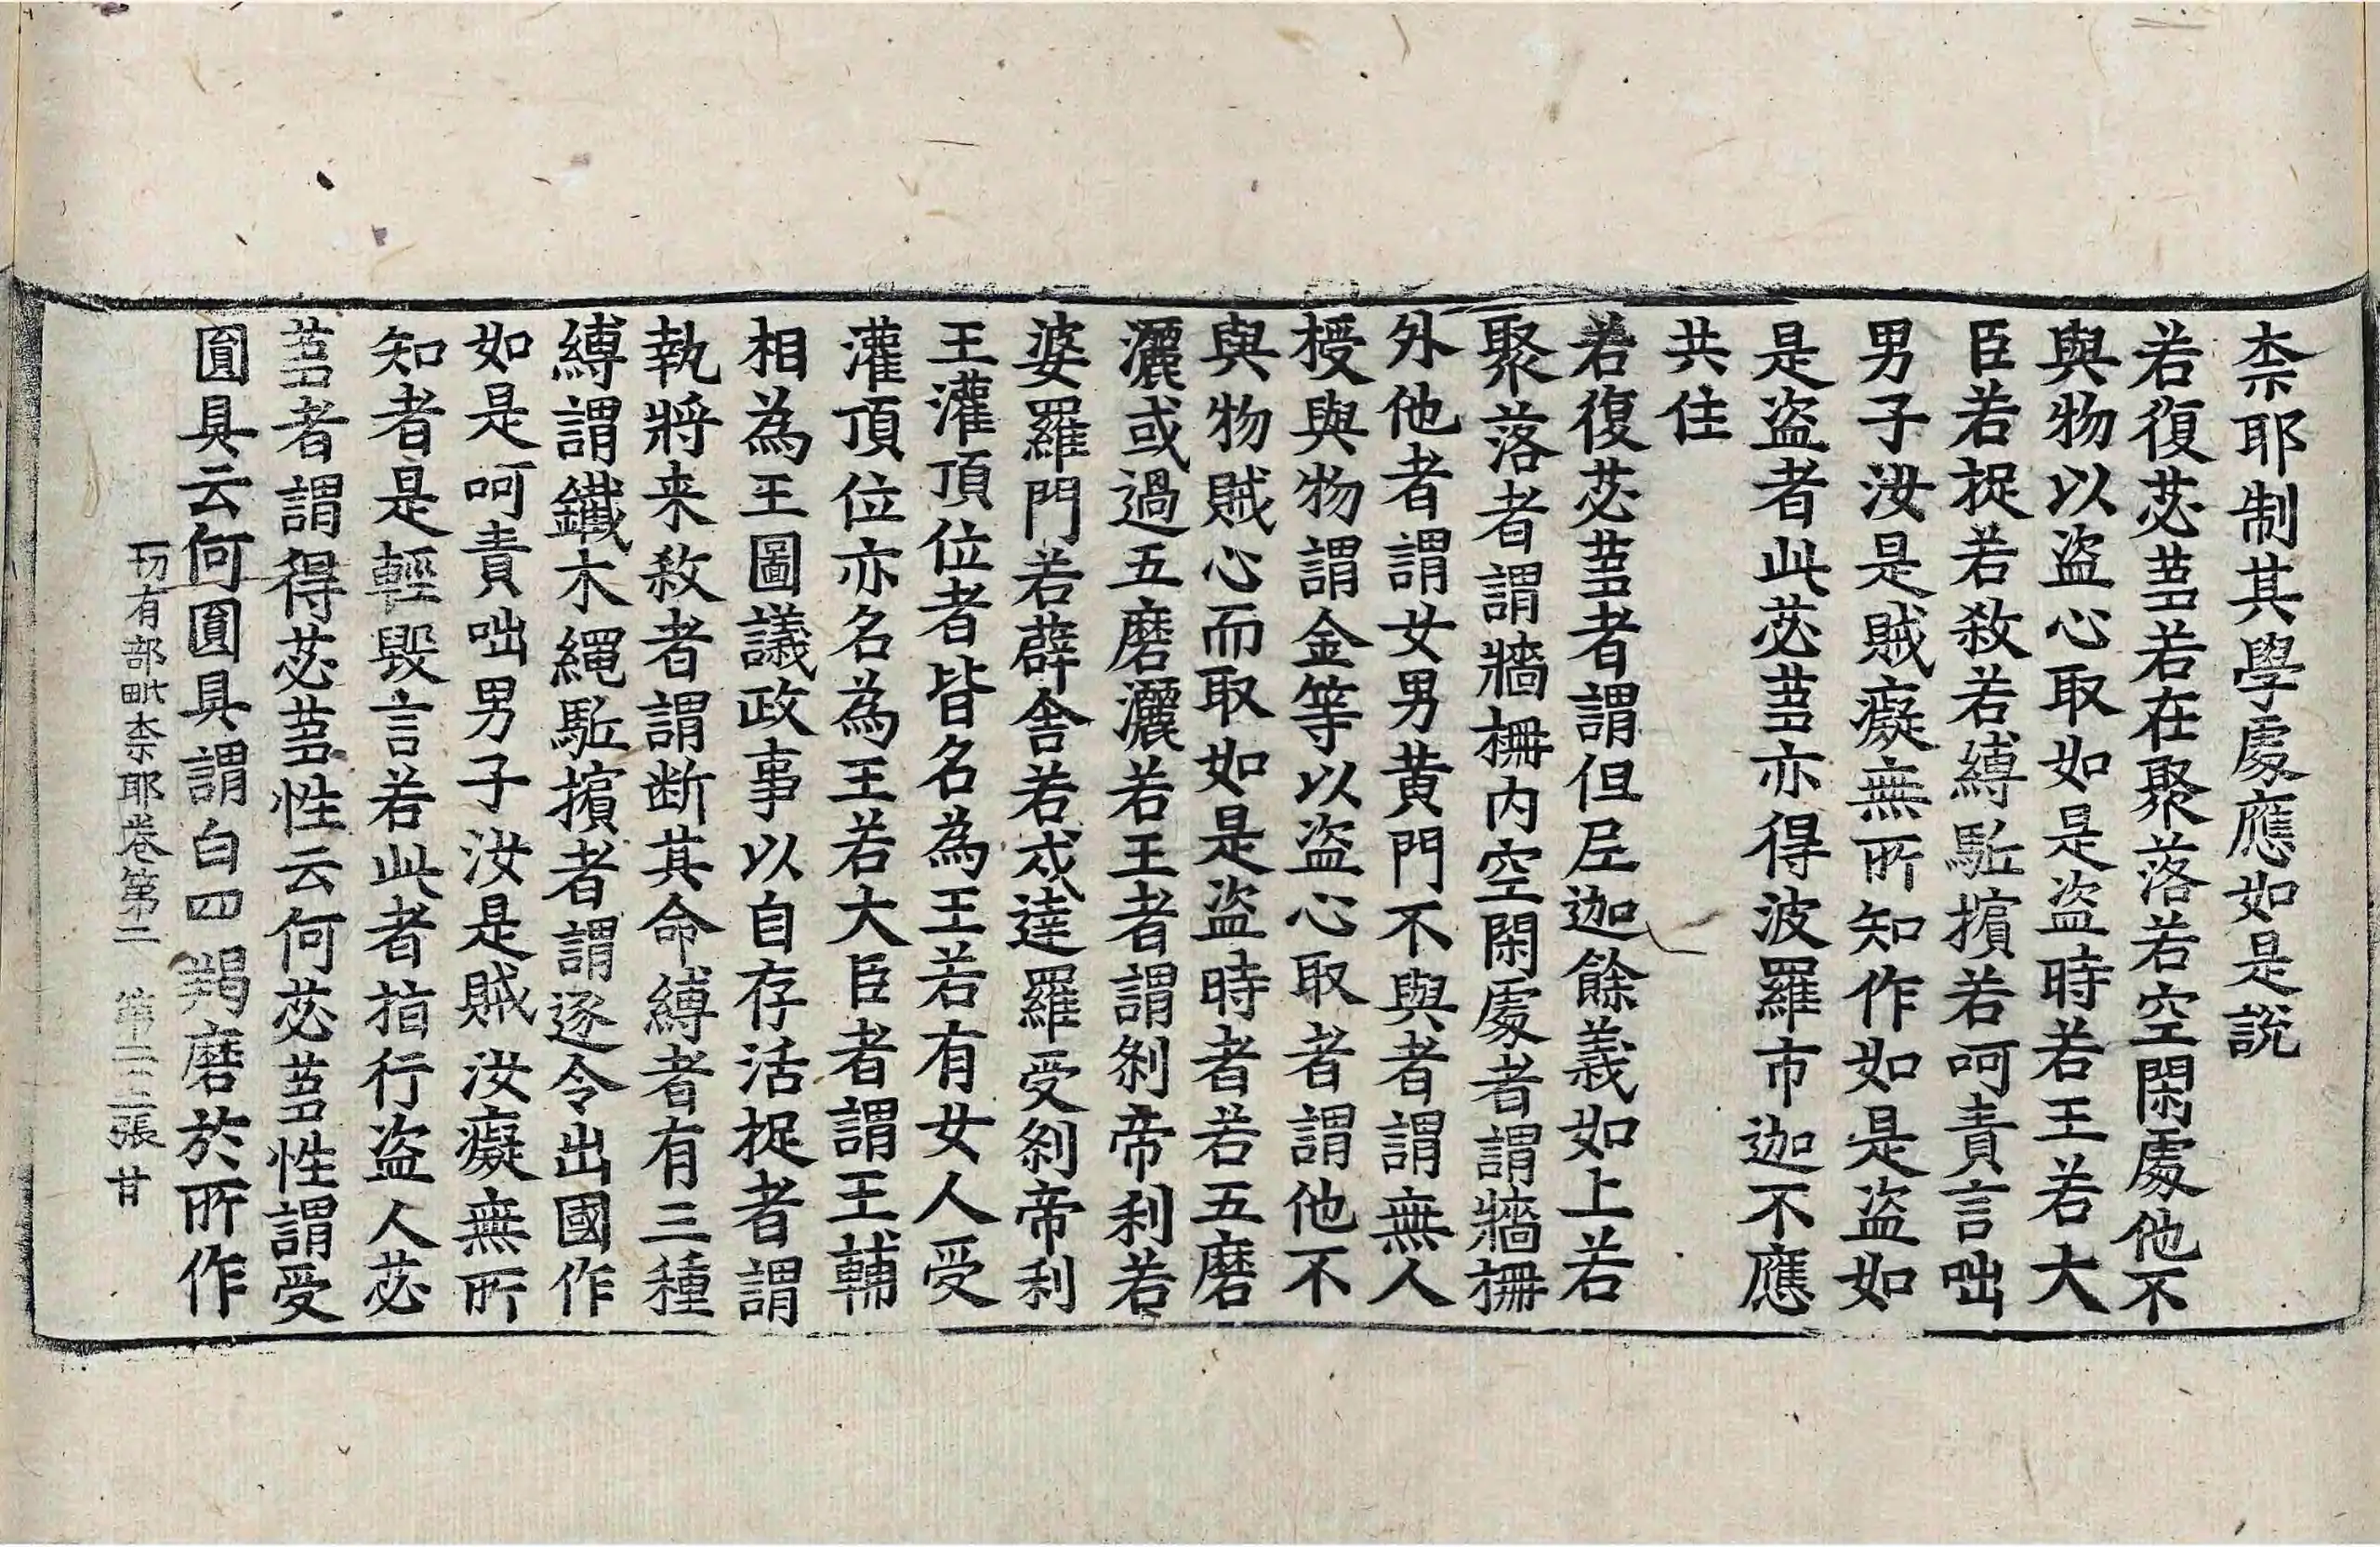 柰耶制其學處應如是說
若復苾蒭若在聚落若空閑處他不
與物以盜心取如是盜時若王若大
臣若捉若敎若縛駈擯若呵責言咄
男子汝是賊癡無所知作如是盜如
是盜者此苾蒭亦得波羅市迦不應
共住
若復苾蒭者謂但𡰱迦餘義如上若
聚落者謂牆柵內空閑處者謂牆柵
外他者謂女男黃門不與者謂無人
授與物謂金等以盜心取者謂他不
與物賊心而取如是盜時者若五磨
灑或過五磨灑若王者謂刹帝利若
婆羅門若薜舍若戍達羅受刹帝利
王灌頂位者皆名為王若有女人受
灌頂位亦名為王若大臣者謂王輔
相為王圖議政事以自存活捉者謂
執將来敎者謂断其命縛者有三種
縛謂鐵木繩駈擯者謂逐令出國作
如是呵責咄男子汝是賊汝癡無所
知者是輕毀言若此者指行盜人苾
蒭者謂得苾蒭性云何苾蒭性謂受
圎具云何圎具謂白四羯磨於所作
一切有部毗柰耶卷第二 第十二張 甘